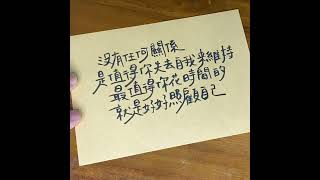 沒有任何關係
是值得你失去自我來維持
最值得你花時間的
就是好好照顧自己